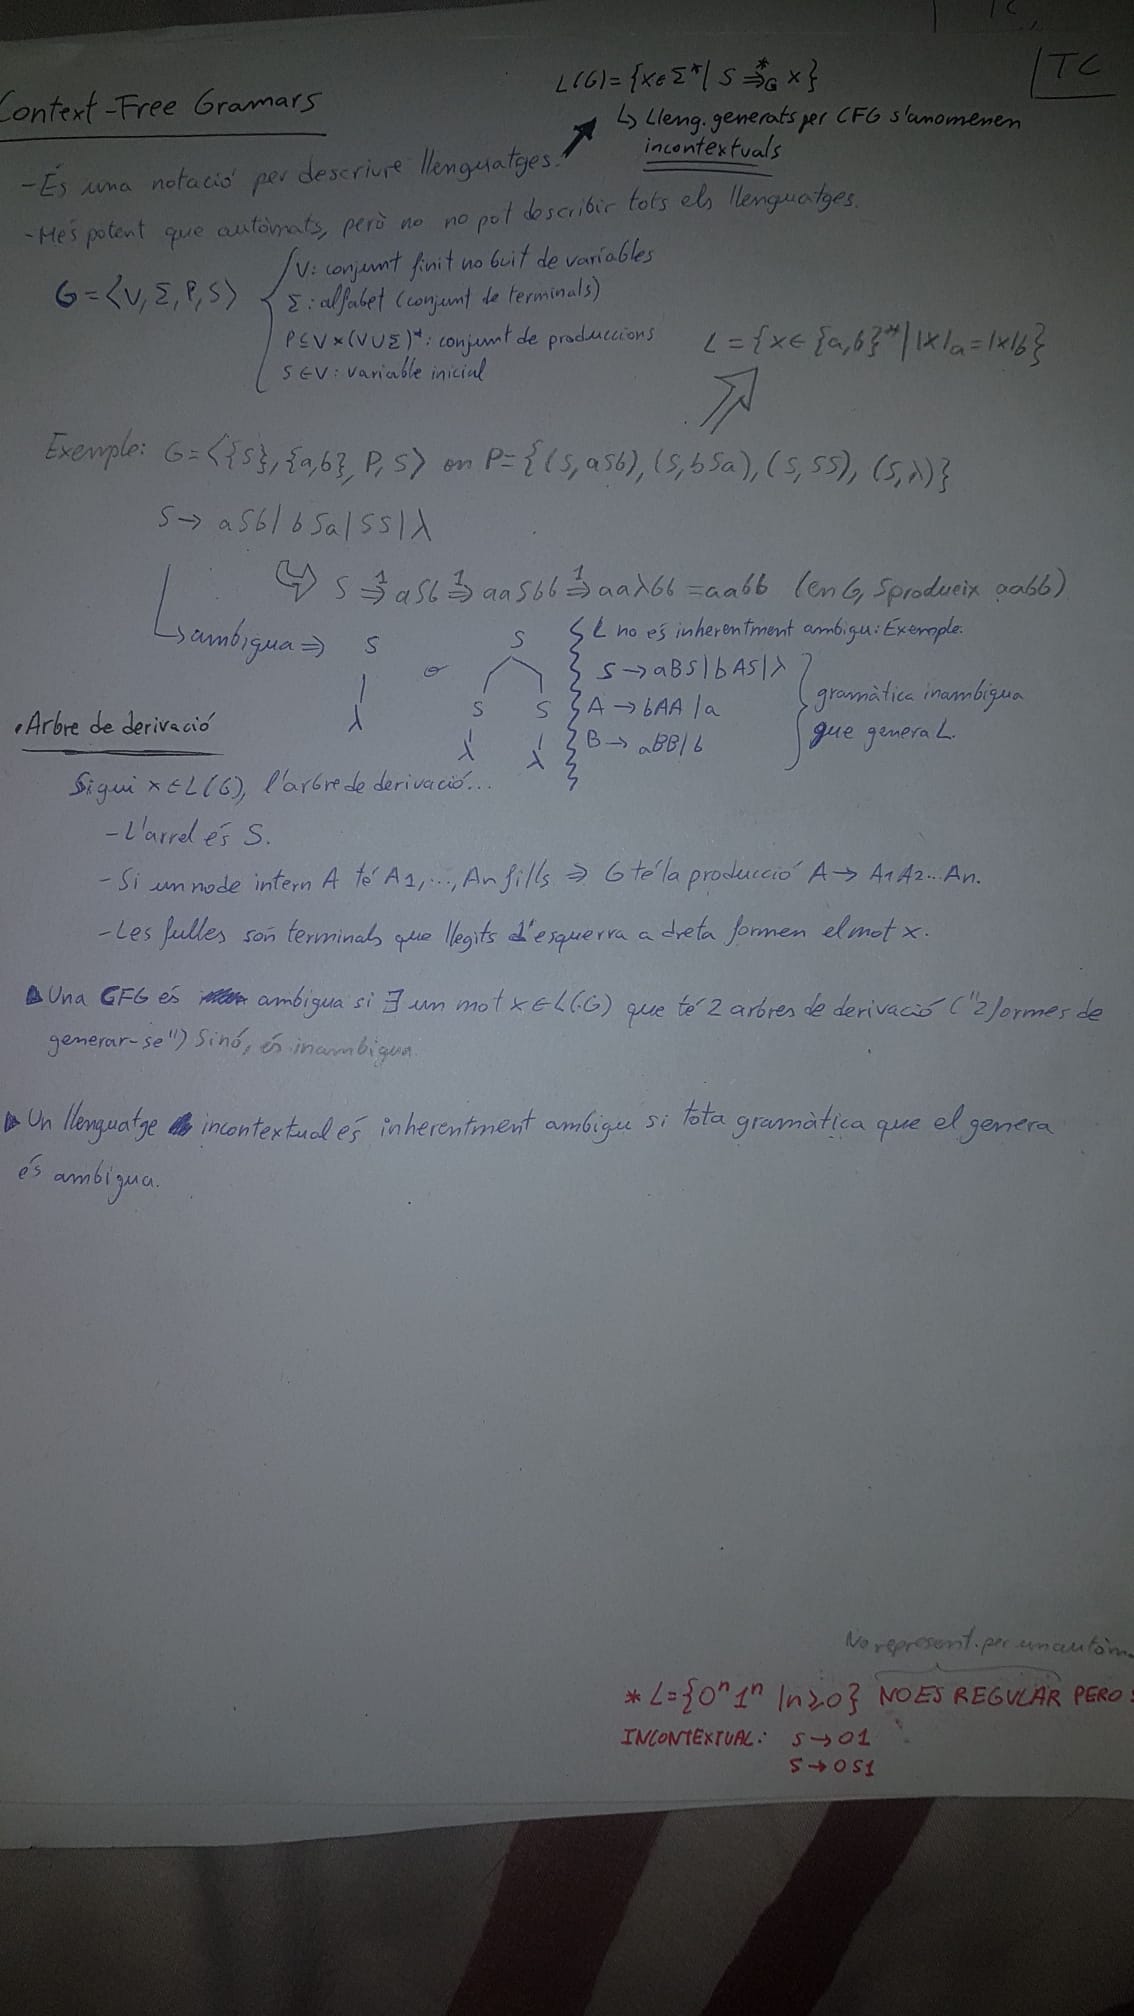 TC
Context-Free Gramars
L(G)={x∈Σ*| S ⇒*G x}
↳ Lleng. generats per CFG s'anomenen
incontextuals
-És una notació per descriure llenguatges.
-Més potent que autòmats, però no no pot describir tots els llenguatges.
G=⟨V,Σ,P,S⟩
V: conjunt finit no buit de variables
Σ: alfabet (conjunt de terminals)
P⊆V×(V∪Σ)*: conjunt de produccions
S∈V: variable inicial
L={x∈{a,b}*| |x|a=|x|b}
Exemple: G=⟨{S},{a,b},P,S⟩ on P={(S,aSb),(S,bSa),(S,SS),(S,λ)}
S→aSb|bSa|SS|λ
S ⇒1 aSb ⇒1 aaSbb ⇒1 aaλbb = aabb (en G, S produeix aabb)
↳ambigua⇒ S
λ
o
S
S S
λ λ
L no és inherentment ambigu: Exemple.
S→aBS|bAS|λ
A→bAA|a
B→aBB|b
gramàtica inambigua
que genera L.
•Arbre de derivació
Sigui x∈L(G), l'arbre de derivació...
-L'arrel és S.
-Si un node intern A té A1,...,An fills ⇒ G té la producció A→A1A2...An.
-Les fulles són terminals que llegits d'esquerra a dreta formen el mot x.
▶Una CFG és ambigua si ∃ un mot x∈L(G) que té 2 arbres de derivació ("2 formes de
generar-se") Sinó, és inambigua.
▶Un llenguatge incontextual és inherentment ambigu si tota gramàtica que el genera
és ambigua.
No represent. per un autòm.
*L={0ⁿ1ⁿ |n≥0} NO ES REGULAR PERO
INCONTEXTUAL: S→01
S→0S1